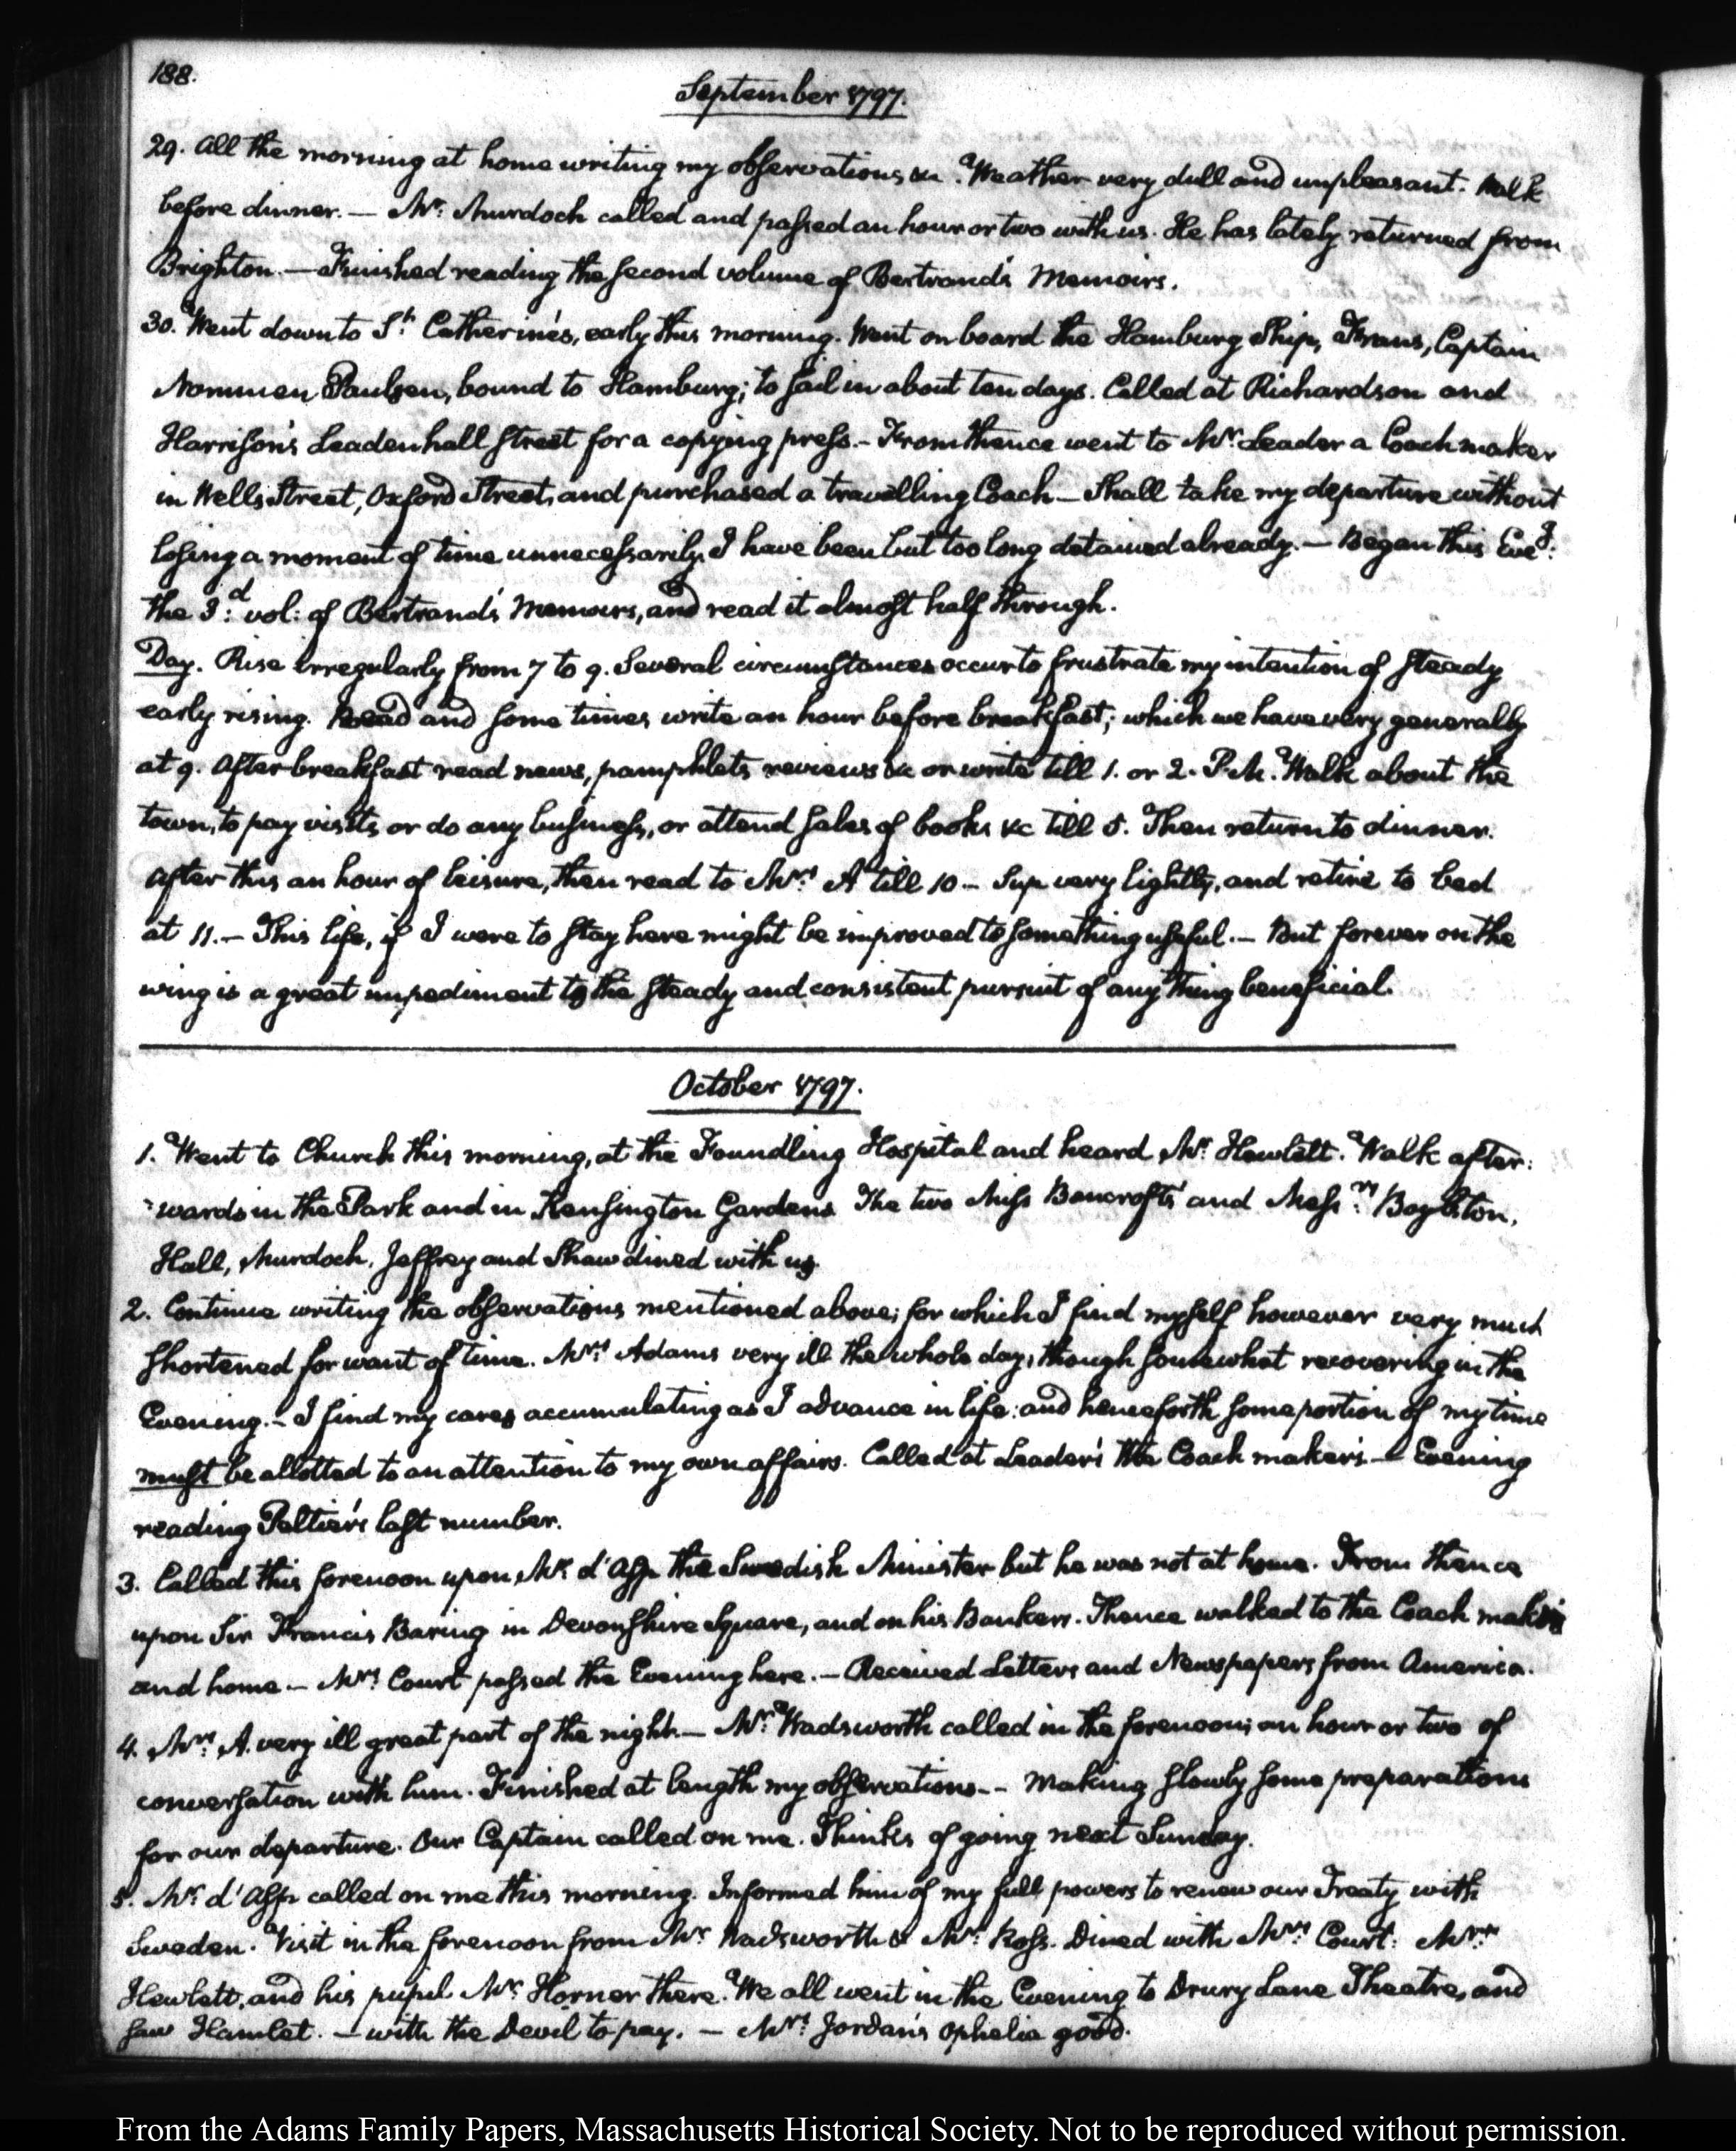 188.
September 1797.
29. All the morning at home writing my observations &c. Weather very dull and unpleasant. Walk
before dinner. — Mr. Murdoch called and passed an hour or two with us. He has lately returned from
Brighton. — Finished reading the second volume of Bertrand's Memoirs.
30. Went down to St. Catherine's, early this morning. Went on board the Hamburg Ship, Frans, Captain
Nommen Paulsen, bound to Hamburg; to sail in about ten days. Called at Richardson and
Harrison's Leadenhall Street for a copying press. — From thence went to Mr. Leader a Coachmaker
in Wells Street, Oxford Street, and purchased a travelling Coach — Shall take my departure without
losing a moment of time unnecessarily. I have been but too long detained already. — Began this Eveg:
the 3:d vol: of Bertrand's Memoirs, and read it almost half through.
Day. Rise irregularly from 7 to 9. Several circumstances occur to frustrate my intention of steady
early rising. Read and some times write an hour before breakfast; which we have very generally
at 9. After breakfast read news, pamphlets, reviews &c or write till 1. or 2. P.M. Walk about the
town, to pay visits or do any business, or attend sales of books &c till 5. Then return to dinner.
After this an hour of leisure, then read to Mrs. A till 10 — Sup very lightly, and retire to bed
at 11. — This life, if I were to stay here might be improved to something useful. — But forever on the
wing is a great impediment to the steady and consistent pursuit of any thing beneficial.
October 1797.
1. Went to Church this morning, at the Foundling Hospital and heard Mr. Hewlett. Walk after:
:wards in the Park and in Kensington Gardens. The two Miss Bancrofts' and Messrs. Boylston,
Hall, Murdoch, Jeffrey and Shaw dined with us.
2. Continue writing the observations mentioned above; for which I find myself however very much
shortened for want of time. Mrs. Adams very ill the whole day, though somewhat recovering in the
Evening. — I find my cares accumulating as I advance in life: and henceforth some portion of my time
must be allotted to an attention to my own affairs. Called at Leader's the Coach maker's — Evening
reading Peltier's last number.
3. Called this forenoon upon Mr. d'Asp the Swedish Minister but he was not at home. From thence
upon Sir Francis Baring in Devonshire Square, and on his Bankers. Thence walked to the Coach maker's
and home — Mrs. Court passed the Evening here. — Received Letters and Newspapers from America.
4. Mrs. A. very ill great part of the night. — Mr. Wadsworth called in the forenoon; an hour or two of
conversation with him. Finished at length my observations. — Making slowly some preparations
for our departure. Our Captain called on me. Thinks of going next Sunday.
5. Mr. d'Asp called on me this morning. Informed him of my full powers to renew our Treaty with
Sweden. Visit in the forenoon from Mr. Wadsworth & Mr. Ross. Dined with Mrs. Court. Mr.
Hewlett, and his pupil Mr. Horner there. We all went in the Evening to Drury Lane Theatre, and
saw Hamlet. — with the Devil to pay. — Mrs. Jordan's Ophelia good.
From the Adams Family Papers, Massachusetts Historical Society. Not to be reproduced without permission.